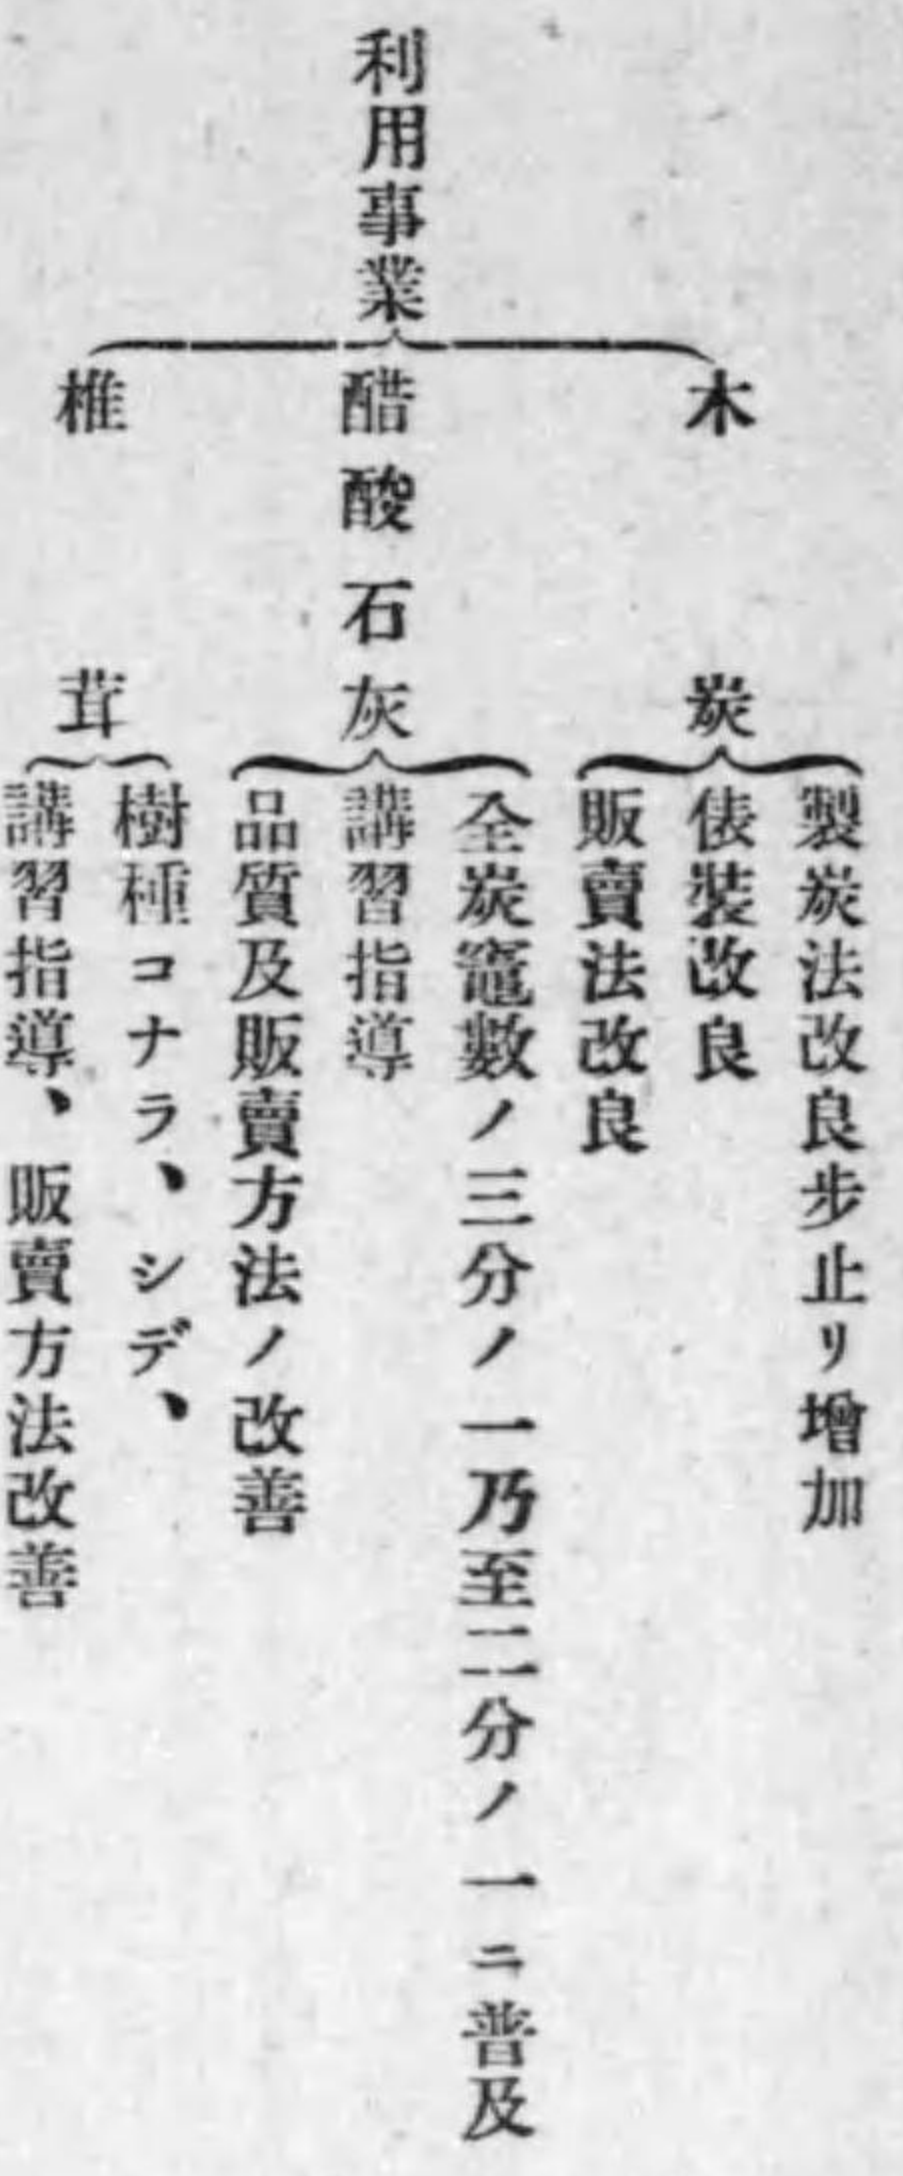 利用事業
木炭
製炭法改良步止リ增加
俵裝改良
販賣法改良
醋酸石灰
全炭竈數ノ三分ノ一乃至二分ノ一ニ普及
講習指導
品質及販賣方法ノ改善
椎茸
樹種コナラ、シデ、
講習指導、販賣方法改善